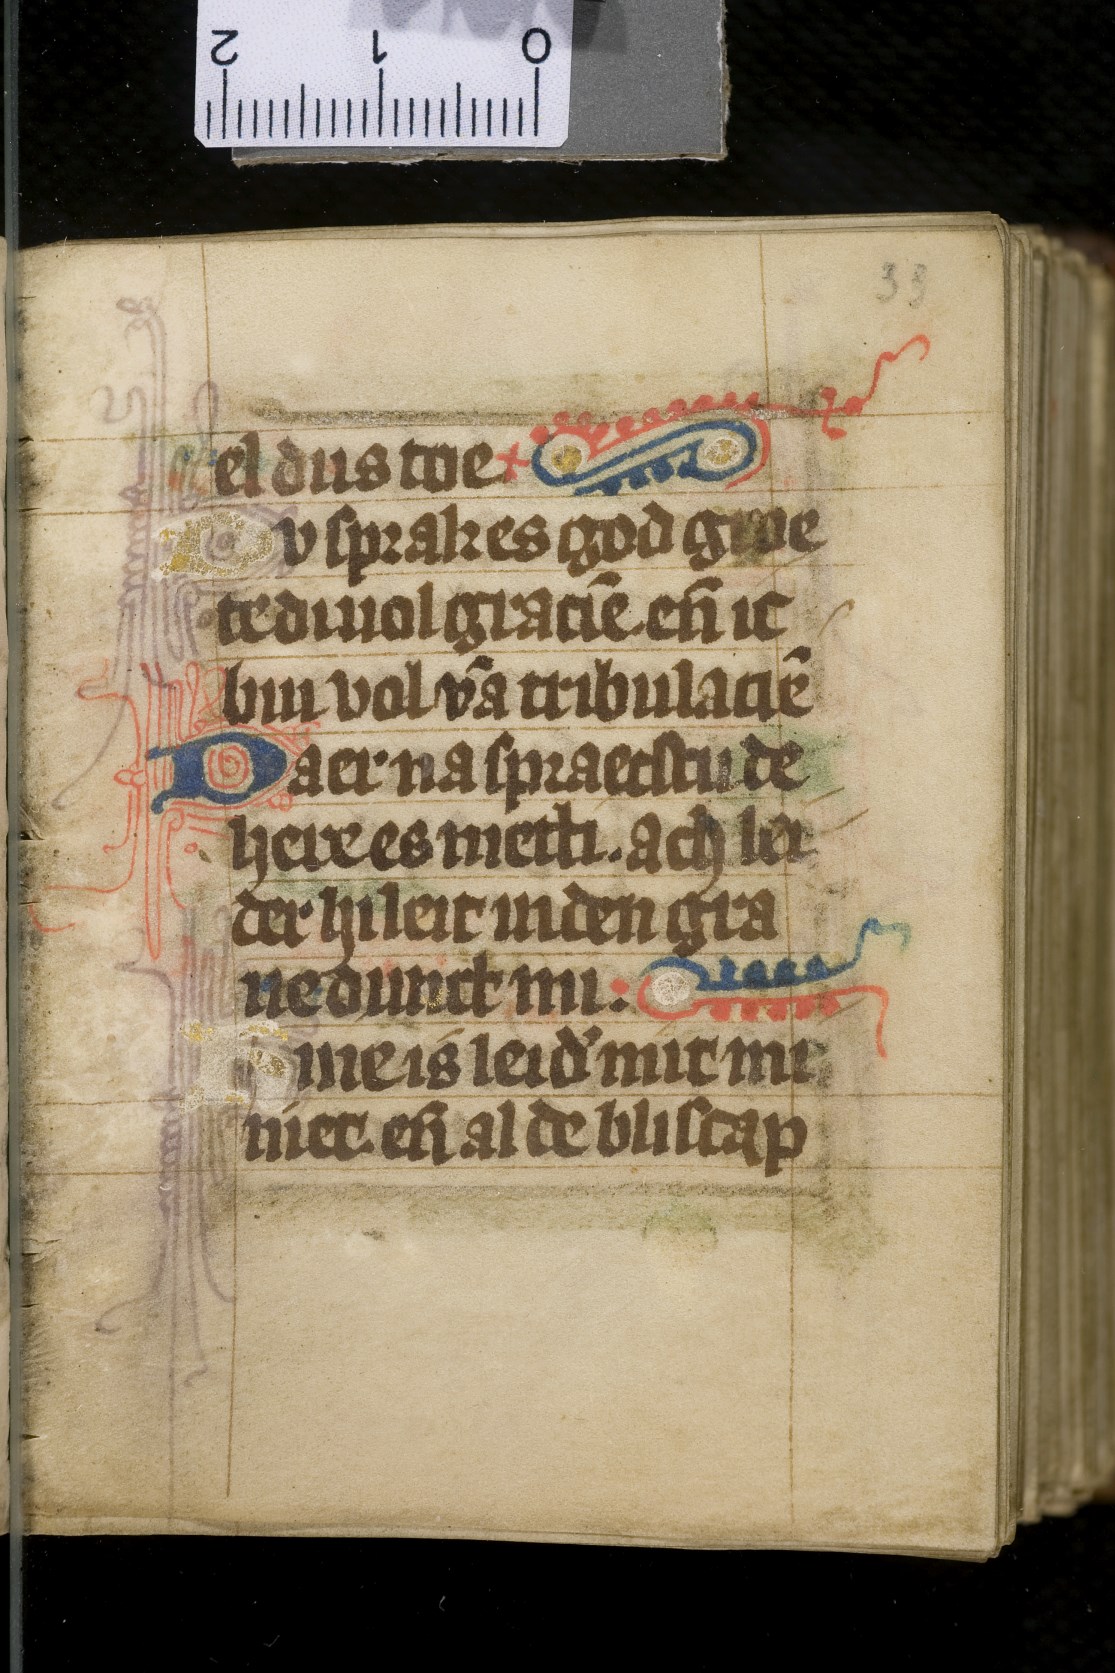 2 1 0
39
el dus toe
Du sprakes god groe
te di uol graciē. en̄ ic
bin vol vā tribulaciē
Daer na spraecstu de
here es metti. ach lei
der hi leit in den gra
ue dunct mi.
Mine is leid' mit mi
niet. en̄ al de bliscap